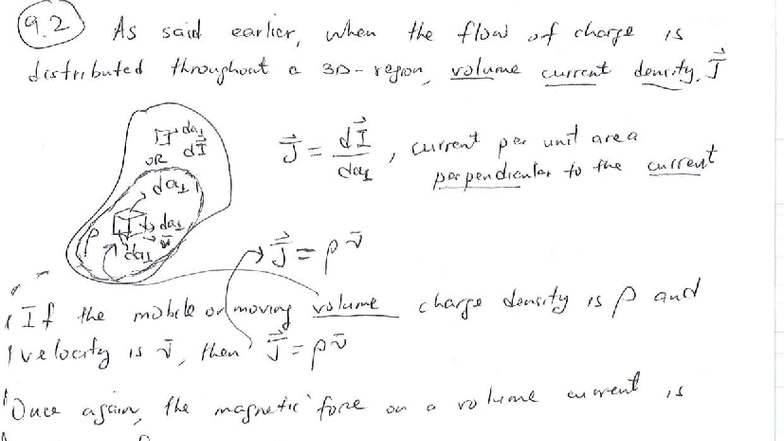 9.2 As said earlier, when the flow of charge is
distributed throughout a 3D-region, volume current density, J⃗
da⊥
dI⃗
OR
da⊥
J⃗ = dI⃗/da⊥, current per unit area
perpendicular to the current
da⊥
ρ
da⊥
J⃗ = ρv̄
If the mobile or moving volume charge density is ρ and
velocity is v̄, then J⃗ = ρv̄
Once again, the magnetic force on a volume current is